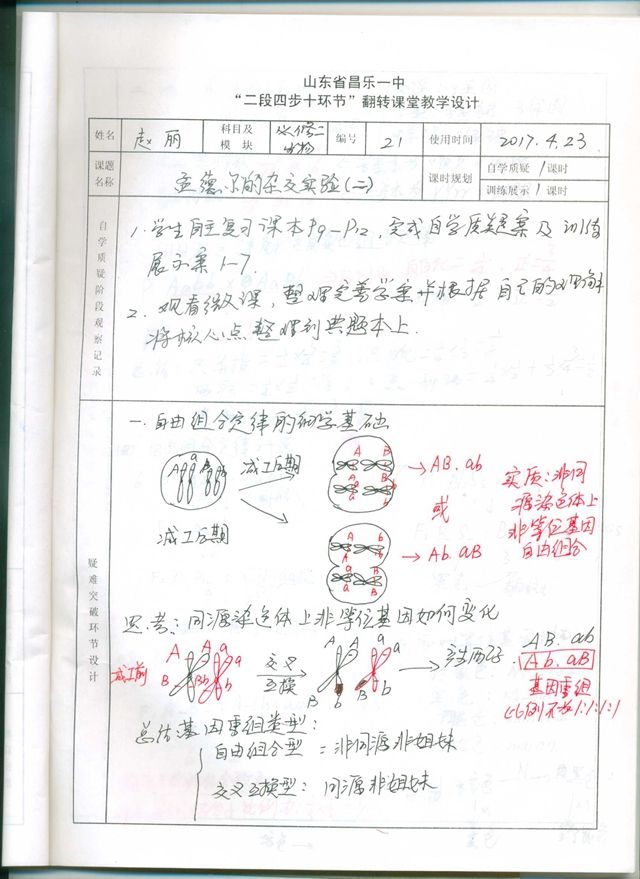 山东省昌乐一中
“二段四步十环节”翻转课堂教学设计
姓名 赵丽 科目及模块 必修二生物 编号 21 使用时间 2017.4.23
课题名称 孟德尔的杂交实验(二) 课时规划 自学质疑 1课时
训练展示 1课时
自学质疑阶段观察记录
1.学生自主复习课本P9-P12,完成自学质疑案及训练
展示案1-7.
2.观看微课,整理完善学案并根据自己的理解
将核心点整理到典题本上.
疑难突破环节设计
一.自由组合定律的细胞学基础
减Ⅰ后期 →AB.ab
或
减Ⅰ后期 →Ab.aB
实质:非同
源染色体上
非等位基因
自由组合
思考:同源染色体上非等位基因如何变化
减Ⅰ前 A A a a B B b b 交叉互换 A a B b B b →产生配子 AB.ab
Ab.aB
基因重组
比例不为1:1:1:1
总结:基因重组类型:
自由组合型=非同源非姐妹
交叉互换型:同源非姐妹